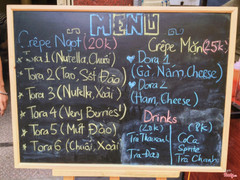 MENU
Crêpe Ngọt (20k)
Tora 1 (Nutella, Chuối)
Tora 2 (Táo, Sốt Đào)
Tora 3 (Nutella, Xoài)
Tora 4 (Very Berries!)
Tora 5 (Mứt Đào)
Tora 6 (Chuối, Xoài)
Crêpe Mặn (25k)
Dora 1
(Gà Nấm, Cheese)
Dora 2
(Ham, Cheese)
Drinks
(20k)
Trà Đào
CoCa
Sprite
Trà Chanh